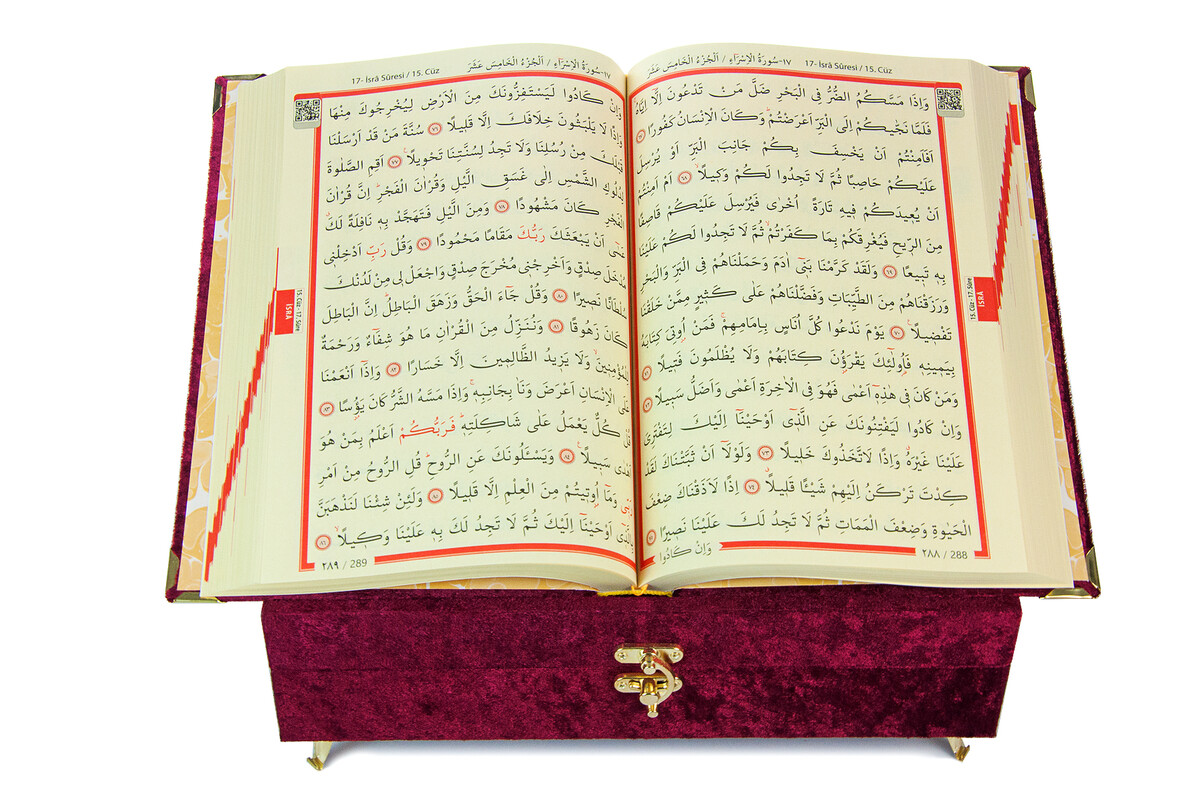 ١٧-سُورَةُ الْاِسْرَاءِ / اَلْجُزْءُ الْخَامِسَ عَشَرَ 17- İsrâ Sûresi / 15. Cüz
وَاِذَا مَسَّكُمُ الضُّرُّ فِى الْبَحْرِ ضَلَّ مَنْ تَدْعُونَ اِلَّٓا اِيَّاهُ
فَلَمَّا نَجّٰيكُمْ اِلَى الْبَرِّ اَعْرَضْتُمْ وَكَانَ الْاِنْسَانُ كَفُورًا ٦٧
اَفَاَمِنْتُمْ اَنْ يَخْسِفَ بِكُمْ جَانِبَ الْبَرِّ اَوْ يُرْسِلَ
عَلَيْكُمْ حَاصِبًا ثُمَّ لَا تَجِدُوا لَكُمْ وَكِيلًا ٦٨ اَمْ اَمِنْتُمْ
اَنْ يُعِيدَكُمْ فِيهِ تَارَةً اُخْرٰى فَيُرْسِلَ عَلَيْكُمْ قَاصِفًا
مِنَ الرِّيحِ فَيُغْرِقَكُمْ بِمَا كَفَرْتُمْ ثُمَّ لَا تَجِدُوا لَكُمْ عَلَيْنَا
بِهِ تَبِيعًا ٦٩ وَلَقَدْ كَرَّمْنَا بَنِٓى اٰدَمَ وَحَمَلْنَاهُمْ فِى الْبَرِّ وَالْبَحْرِ
وَرَزَقْنَاهُمْ مِنَ الطَّيِّبَاتِ وَفَضَّلْنَاهُمْ عَلٰى كَثِيرٍ مِمَّنْ خَلَقْنَا
تَفْضِيلًا ٧٠ يَوْمَ نَدْعُوا كُلَّ اُنَاسٍ بِاِمَامِهِمْ فَمَنْ اُوتِىَ كِتَابَهُ
بِيَمِينِهِ فَاُولٰٓئِكَ يَقْرَؤُ۫نَ كِتَابَهُمْ وَلَا يُظْلَمُونَ فَتِيلًا ٧١
وَمَنْ كَانَ فِى هٰذِهِٓ اَعْمٰى فَهُوَ فِى الْاٰخِرَةِ اَعْمٰى وَاَضَلُّ سَبِيلًا ٧٢
وَاِنْ كَادُوا لَيَفْتِنُونَكَ عَنِ الَّذِٓى اَوْحَيْنَٓا اِلَيْكَ لِتَفْتَرِىَ
عَلَيْنَا غَيْرَهُ وَاِذًا لَاتَّخَذُوكَ خَلِيلًا ٧٣ وَلَوْلَٓا اَنْ ثَبَّتْنَاكَ لَقَدْ
كِدْتَ تَرْكَنُ اِلَيْهِمْ شَيْئًا قَلِيلًا ٧٤ اِذًا لَاَذَقْنَاكَ ضِعْفَ
الْحَيٰوةِ وَضِعْفَ الْمَمَاتِ ثُمَّ لَا تَجِدُ لَكَ عَلَيْنَا نَصِيرًا ٧٥
وَاِنْ كَادُوا
٢٨٨ / 288
15. Cüz - 17. Sûre
İSRÂ
17- İsrâ Sûresi / 15. Cüz ١٧-سُورَةُ الْاِسْرَاءِ / اَلْجُزْءُ الْخَامِسَ عَشَرَ
وَاِنْ كَادُوا لَيَسْتَفِزُّونَكَ مِنَ الْاَرْضِ لِيُخْرِجُوكَ مِنْهَا
وَاِذًا لَا يَلْبَثُونَ خِلَافَكَ اِلَّا قَلِيلًا ٧٦ سُنَّةَ مَنْ قَدْ اَرْسَلْنَا
قَبْلَكَ مِنْ رُسُلِنَا وَلَا تَجِدُ لِسُنَّتِنَا تَحْوِيلًا ٧٧ اَقِمِ الصَّلٰوةَ
لِدُلُوكِ الشَّمْسِ اِلٰى غَسَقِ الَّيْلِ وَقُرْاٰنَ الْفَجْرِ اِنَّ قُرْاٰنَ
الْفَجْرِ كَانَ مَشْهُودًا ٧٨ وَمِنَ الَّيْلِ فَتَهَجَّدْ بِهِ نَافِلَةً لَكَ
عَسٰٓى اَنْ يَبْعَثَكَ رَبُّكَ مَقَامًا مَحْمُودًا ٧٩ وَقُلْ رَبِّ اَدْخِلْنِى
مُدْخَلَ صِدْقٍ وَاَخْرِجْنِى مُخْرَجَ صِدْقٍ وَاجْعَلْ لِى مِنْ لَدُنْكَ
سُلْطَانًا نَصِيرًا ٨٠ وَقُلْ جَٓاءَ الْحَقُّ وَزَهَقَ الْبَاطِلُ اِنَّ الْبَاطِلَ
كَانَ زَهُوقًا ٨١ وَنُنَزِّلُ مِنَ الْقُرْاٰنِ مَا هُوَ شِفَٓاءٌ وَرَحْمَةٌ
لِلْمُؤْمِنِينَ وَلَا يَزِيدُ الظَّالِمِينَ اِلَّا خَسَارًا ٨٢ وَاِذَٓا اَنْعَمْنَا
عَلَى الْاِنْسَانِ اَعْرَضَ وَنَاٰ بِجَانِبِهِ وَاِذَا مَسَّهُ الشَّرُّ كَانَ يَؤُ۫سًا ٨٣
قُلْ كُلٌّ يَعْمَلُ عَلٰى شَاكِلَتِهِ فَرَبُّكُمْ اَعْلَمُ بِمَنْ هُوَ
اَهْدٰى سَبِيلًا ٨٤ وَيَسْـَٔلُونَكَ عَنِ الرُّوحِ قُلِ الرُّوحُ مِنْ اَمْرِ
رَبِّى وَمَٓا اُو۫تِيتُمْ مِنَ الْعِلْمِ اِلَّا قَلِيلًا ٨٥ وَلَئِنْ شِئْنَا لَنَذْهَبَنَّ
بِالَّذِٓى اَوْحَيْنَٓا اِلَيْكَ ثُمَّ لَا تَجِدُ لَكَ بِهِ عَلَيْنَا وَكِيلًا ٨٦
٢٨٩ / 289
15. Cüz - 17. Sûre
İSRÂ